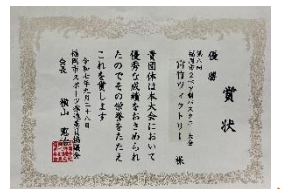 賞状
優勝
宮竹ヴィクトリー 様
貴団体は本大会において
優秀な成績をおさめられ
たのでその栄誉をたたえ
これを賞します
令和七年九月二十八日
福岡市スポーツ推進委員協議会
会長 横山